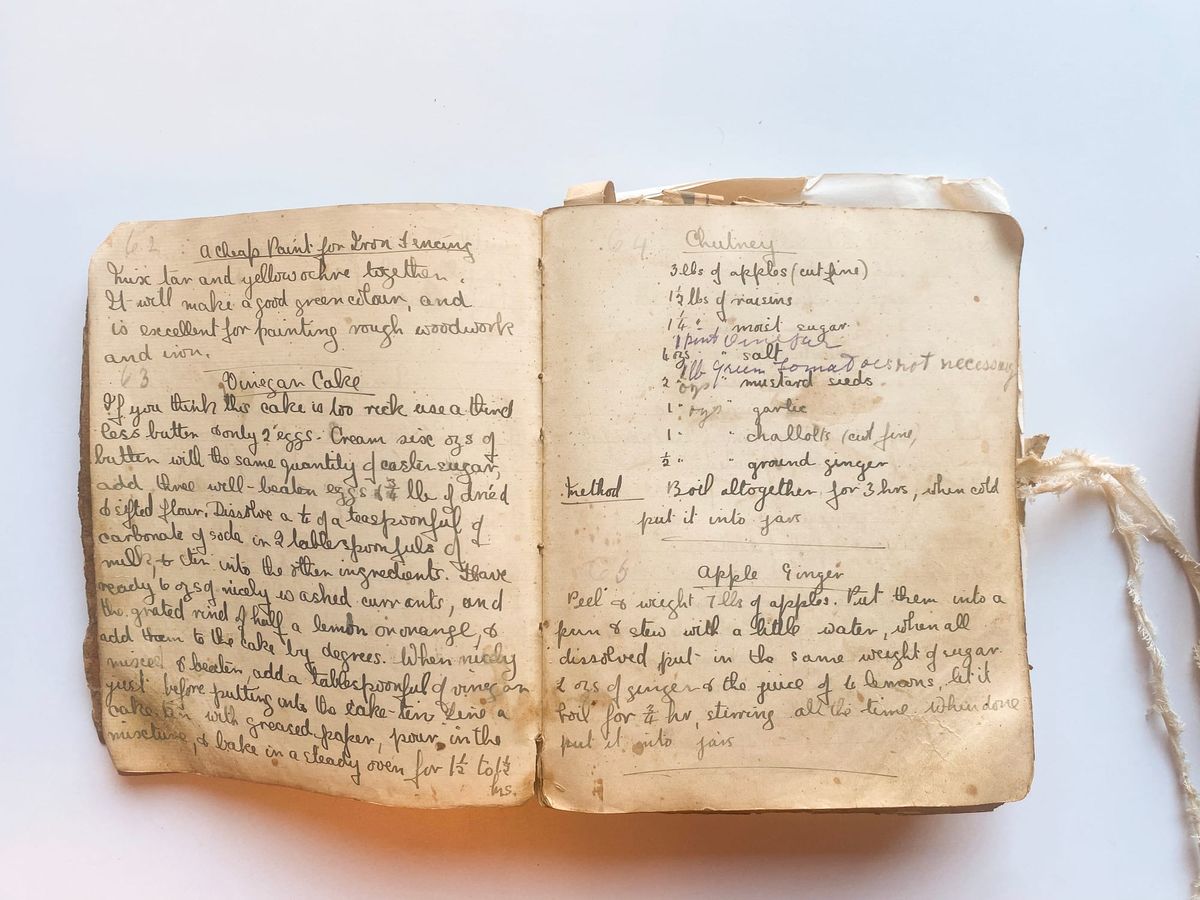 62
A cheap Paint for Iron Fencing
Mix tar and yellow ochre together.
It will make a good green colour, and
is excellent for painting rough woodwork
and iron.
63
Vinegar Cake
If you think this cake is too rich use a third
less butter & only 2 eggs. Cream six ozs of
butter with the same quantity of castersugar,
add three well-beaten eggs & 3/4 lb of dried
& sifted flour. Dissolve a 1/2 of a teaspoonful of
carbonate of soda in 2 tablespoonfuls of
milk & stir into the other ingredients. Have
ready 6 ozs of nicely washed currants, and
the grated rind of half a lemon or orange, &
add them to the cake by degrees. When nicely
mixed & beaten, add a tablespoonful of vinegar
just before putting into the cake-tin. Line a
cake tin with greased paper, pour in the
mixture, & bake in a steady oven for 1 1/4 to 1 1/2
hrs.
64
Chutney
3 lbs of apples (cut fine)
1 1/2 lbs of raisins
1 1/4 " " moist sugar
1 pint Vinegar
4 ozs " salt
1 lb Green Tomatoes not necessary
2 ozs " mustard seeds
1 " ozs garlic
1 " " challots (cut fine)
1/2 " " ground ginger
Method Boil altogether for 3 hrs, when cold
put it into jars
65
Apple Ginger
Peel & weight 7 lbs of apples. Put them into a
pan & stew with a little water, when all
dissolved put in the same weight of sugar
2 ozs of ginger & the juice of 6 lemons, let it
boil for 3/4 hr, stirring all the time. When done
put it into jars